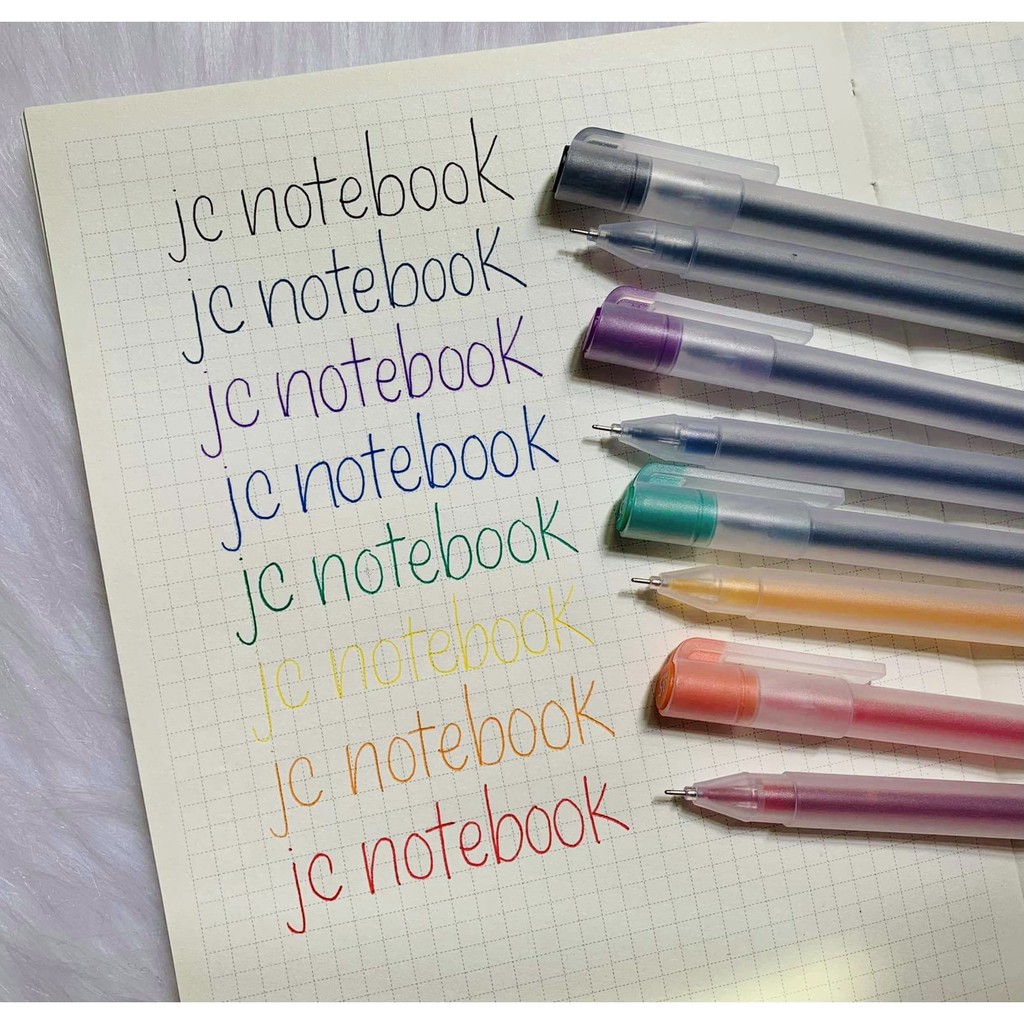 jc notebook
jc notebook
jc notebook
jc notebook
jc notebook
jc notebook
jc notebook
jc notebook